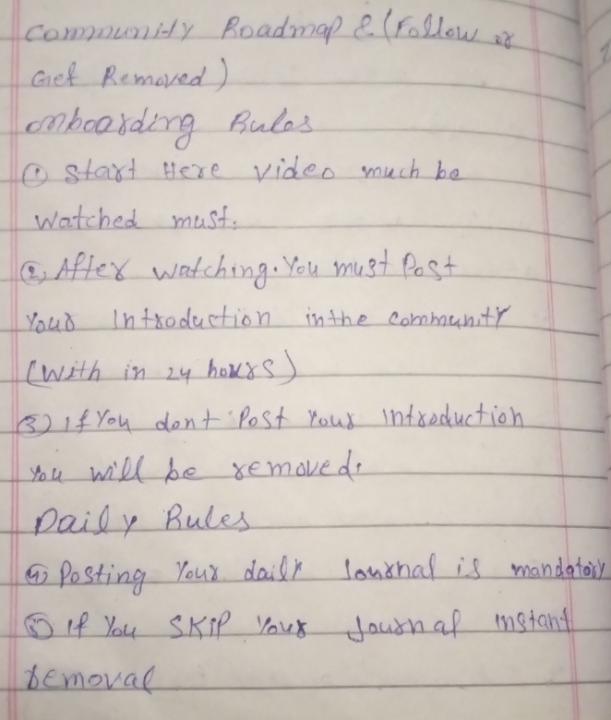 Community Roadmap & (Follow or
Get Removed)
Onboarding Rules
① Start Here video much be
Watched must.
② After watching. You must Post
Your Introduction in the community
(With in 24 hours)
③ If You dont Post Your introduction
You will be removed.
Daily Rules
④ Posting Your daily Journal is mandatory
⑤ If You SKIP Your Journal instant
removal